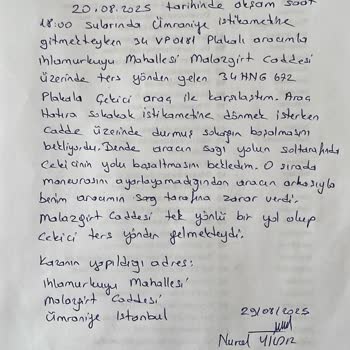 20.08.2025 tarihinde akşam saat
18:00 sularında Ümraniye istikametine
gitmekteyken 34 VP 0181 Plakalı aracımla
Ihlamurkuyu Mahallesi Malazgirt Caddesi
üzerinde ters yönden gelen 34 HNG 672
Plakala Çekici araç ile karşılaştım. Araç
Hatıra sokakak istikametine dönmek isterken
Cadde üzerinde durmuş sokağın boşalmasını
bekliyordu. Bende aracın sağı yolun soltarafında
Çekicinin yolu boşaltmasını bekledim. O sırada
manevrasını ayarlayamadığından aracın arkasıyla
benim aracımın sağ tarafına zarar verdi.
Malazgirt Caddesi tek yönlü bir yol olup
Çekici ters yönden gelmekteydi.
Kazanın yapıldığı adres:
Ihlamurkuyu Mahallesi
Malazgirt Caddesi
Ümraniye Istanbul
29/08/2025
Nural